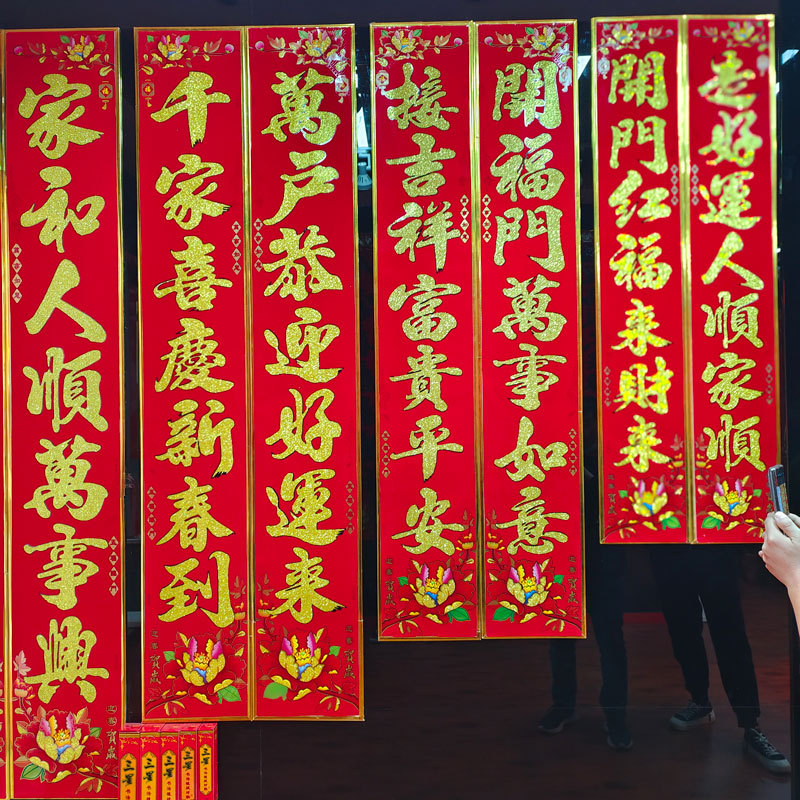 家和人順萬事興
千家喜慶新春到
萬户恭迎好運来
接吉祥富貴平安
開福門萬事如意
開門红福来財来
走好運人順家順
三星
三星
三星
三星
三星